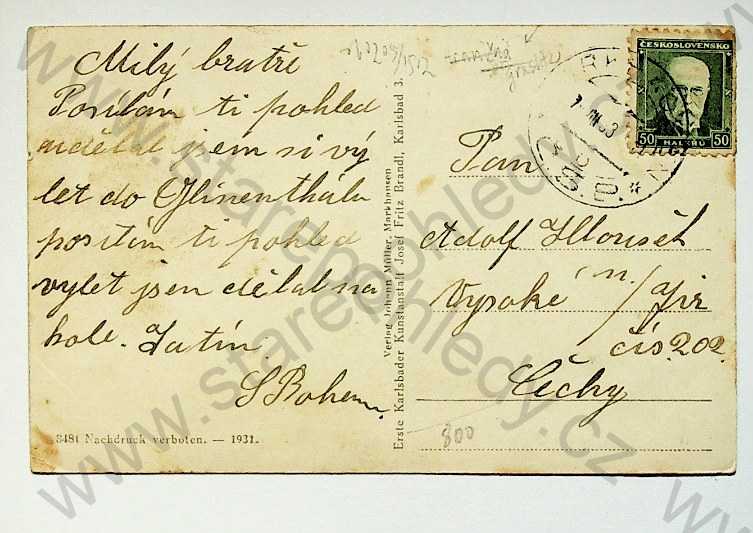 Milý bratře
Posílám ti pohled
udělal jsem si vý
let do Glinenthálu
posílám ti pohled
výlet jsem dělal na
kole. Zatím
S Bohem.
8481 Nachdruck verboten. — 1931.
Verlag Johann Müller, Markhausen
Erste Karlsbader Kunstanstalt Josef Fritz Brandl, Karlsbad 3.
ČESKOSLOVENSKO
50 50
HALÉŘŮ
Pan
Adolf
Vysoké n/Jiz
čís 202.
Čechy
800
www.starepohledy.cz